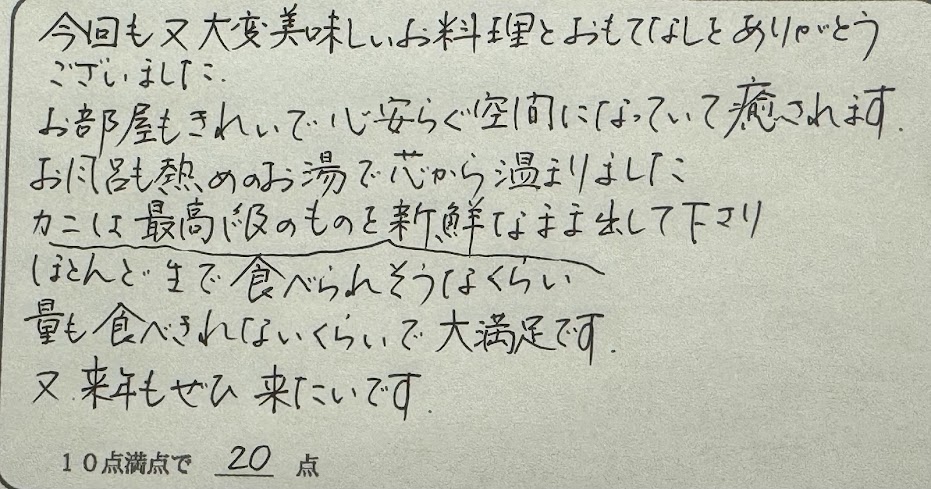 今回も又大変美味しいお料理とおもてなしとありがとう
ございました.
お部屋もきれいで心安らぐ空間になっていて癒されます.
お風呂も熱めのお湯で芯から温まりました
カニは最高級のものを新鮮なまま出して下さり
ほとんど生で食べられそうなくらい
量も食べきれないくらいで大満足です.
又来年もぜひ来たいです.
10点満点で 20 点